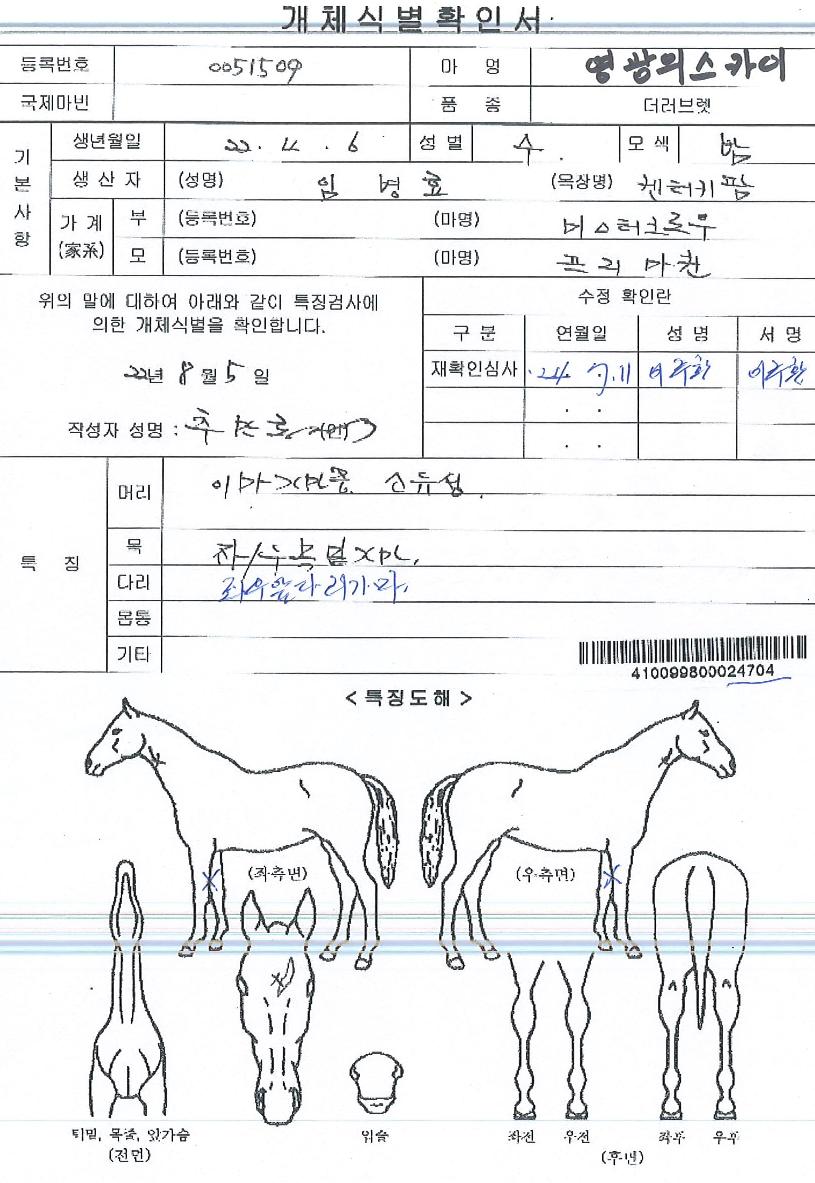 개체식별확인서
등록번호 0051509 마 명 영광의스카이
국제마빈 품 종 더러브렛
기본사항
생년월일 22. 4. 6 성 별 수 모 색 밤
생 산 자 (성명) 임 병 효 (목장명) 켄터키팜
가 계 (家系) 부 (등록번호) (마명) 머스터크로우
모 (등록번호) (마명) 프리마찬
위의 말에 대하여 아래와 같이 특징검사에
의한 개체식별을 확인합니다.
22년 8 월 5 일
작성자 성명 : (인)
수정 확인란
구 분 연월일 성 명 서 명
재확인심사 24. 7. 11
. .
. .
특 징
머리
목 좌/우 목 밑 x
다리 좌우앞다리가마.
몸통
기타
410099800024704
< 특징도해 >
(좌측면) (우측면)
턱밑, 목줄, 앞가슴
(전면)
입술
좌전 우전 좌후 우후
(후면)